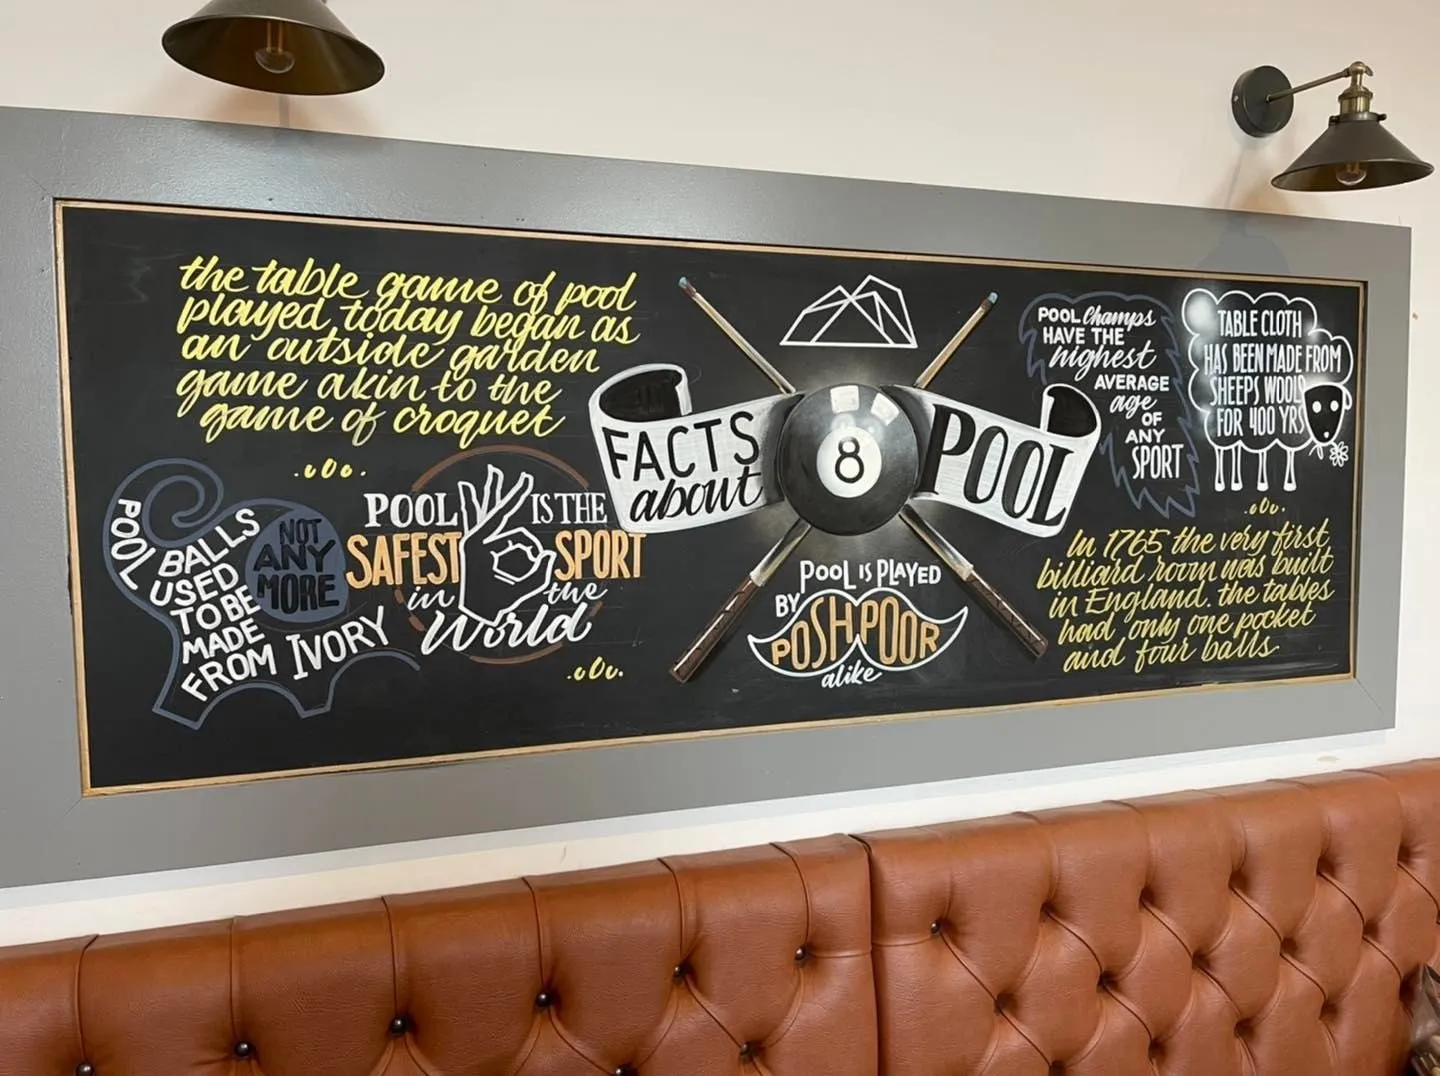 the table game of pool
played today began as
an outside garden
game akin to the
game of croquet
POOL BALLS
USED
TO BE
MADE
FROM IVORY
NOT
ANY
MORE
POOL IS THE
SAFEST SPORT
in the
World
FACTS
about
8
POOL
POOL IS PLAYED
BY
POSH POOR
alike
POOL Champs
HAVE THE
highest
AVERAGE
age
OF
ANY
SPORT
TABLE CLOTH
HAS BEEN MADE FROM
SHEEPS WOOL
FOR 400 YRS
In 1765 the very first
billiard room was built
in England. the tables
had only one pocket
and four balls.